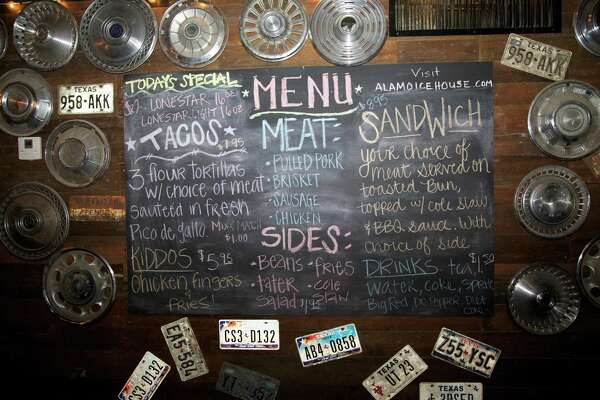 TODAY'S SPECIAL
LONESTAR 16oz
LONESTAR LIGHT 16oz
TACOS
3 flour tortillas
w/ choice of meat
sauteed in fresh
Pico de gallo
$1.00
KIDDOS $5.95
chicken fingers
fries!
MENU
MEAT:
• PULLED PORK
• BRISKET
• SAUSAGE
• CHICKEN
SIDES:
• Beans • fries
• tater salad
• cole slaw
Visit
ALAMOICEHOUSE.COM
$8.95
SANDWICH
your choice of
meat served on
toasted Bun,
topped w/ cole slaw
& BBQ sauce. With
choice of side
DRINKS tea $1.50
water, coke, Sprite
Big Red, Dr Pepper, Diet
Coke
TEXAS
958•AKK
TEXAS
958•AKK
EA5•584
CS3•D132
CS3 D132
AB4 0858
TEXAS
UT 23
Z55•YSC
TEXAS